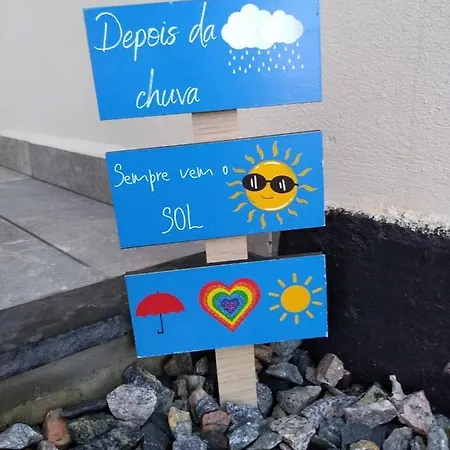 Depois da
chuva
Sempre vem o
SOL